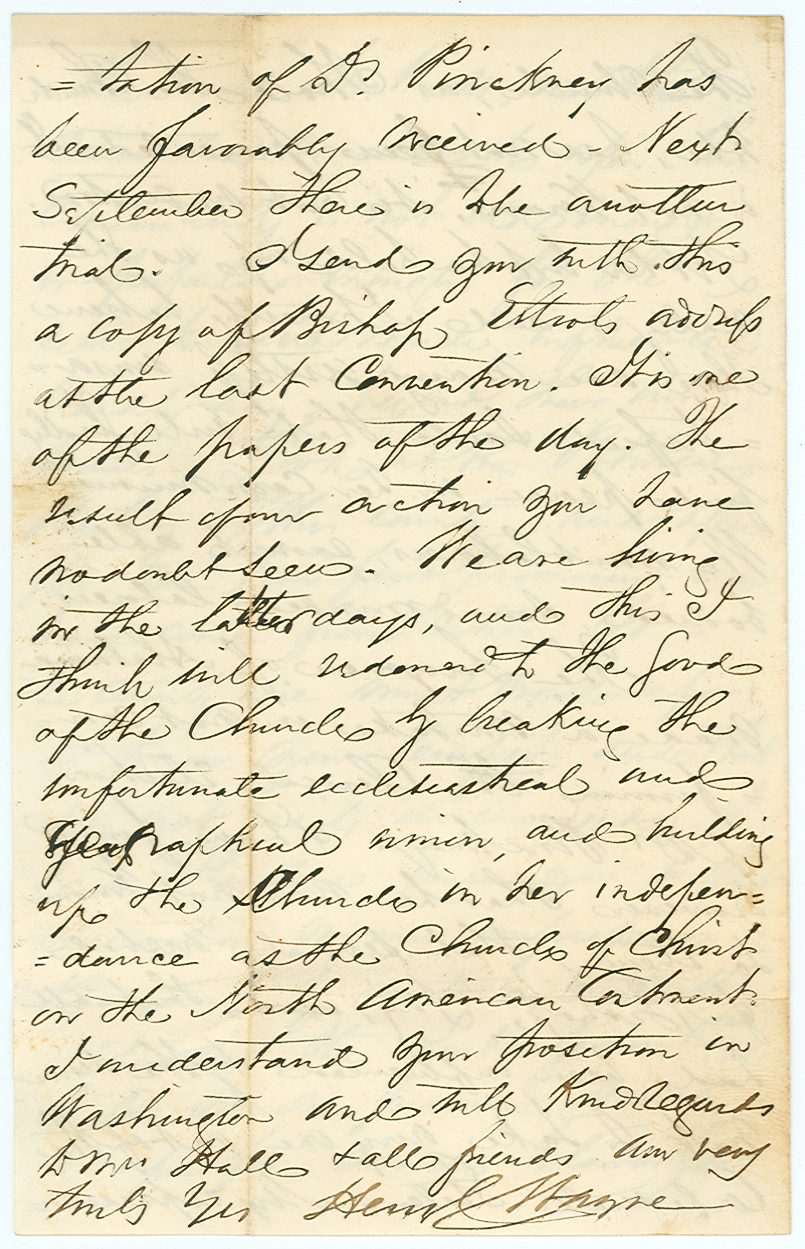 =tation of Dr. Pinckney has
been favorably received - Next
September there is to be another
trial. I send you with this
a copy of Bishop Elliots address
at the last Convention. It is one
of the papers of the day. The
result of our action you have
no doubt seen. We are living
in the latter days, and this I
think will redound to the good
of the Church by breaking the
unfortunate ecclesiastical and
Geographical union, and building
up the Church in her indepen=
=dance as the Church of Christ
on the North American Continent.
I understand your position in
Washington and with Kind regards
to Mrs Hall & all friends am very
truly Yrs Henry C Wayne